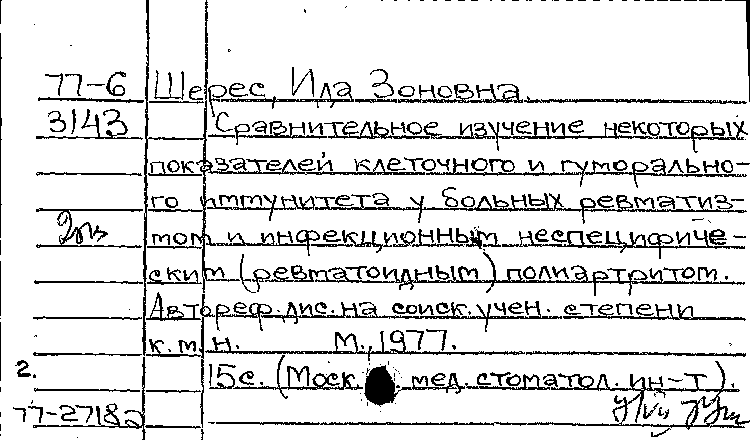 77-6 Шерес, Ида Зоновна.
3143 Сравнительное изучение некоторых
показателей клеточного и гуморально-
го иммунитета у больных ревматиз-
мом и инфекционным неспецифиче-
ским (ревматоидным) полиартритом.
Автореф. дис. на соиск. учен. степени
к. м. н. М., 1977.
2. 15 с. (Моск. мед. стоматол. ин-т).
77-2718